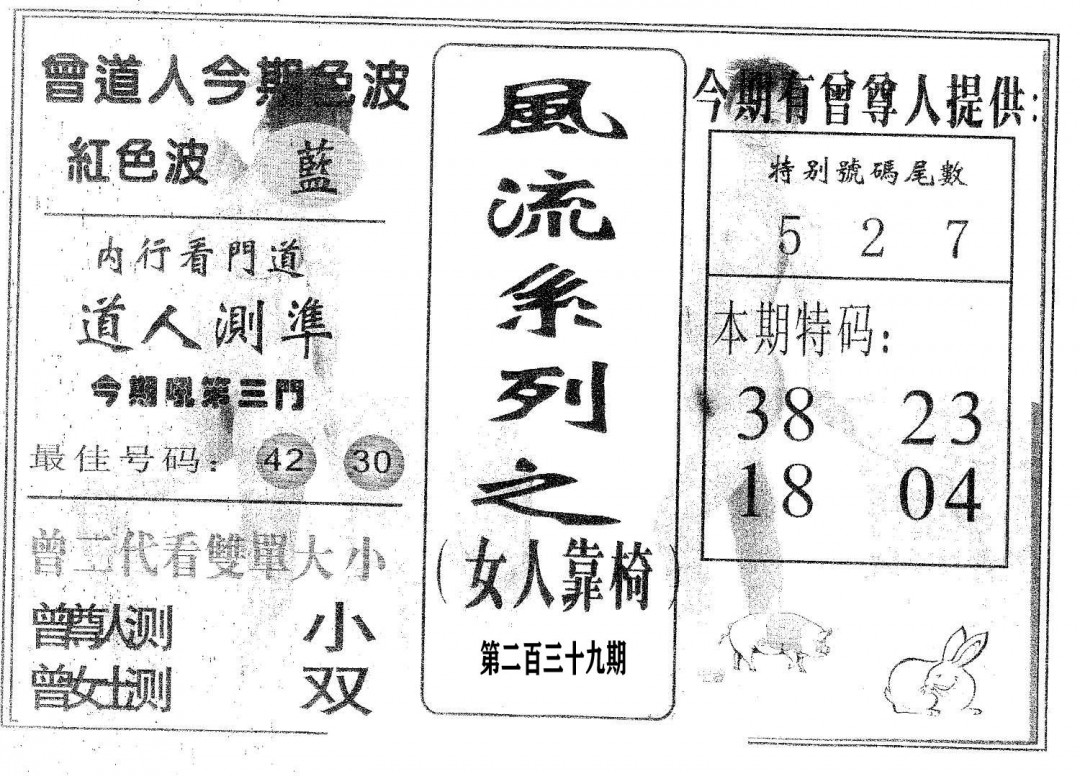 曾道人今期色波
紅色波 藍
内行看門道
道人測準
今期吼第三門
最佳号码: 42 30
曾二代看雙單大小
曾尊人测 小
曾女士测 双
風流系列之
(女人靠椅)
第二百三十九期
今期有曾尊人提供:
特别號碼尾數
5 2 7
本期特码:
38 23
18 04